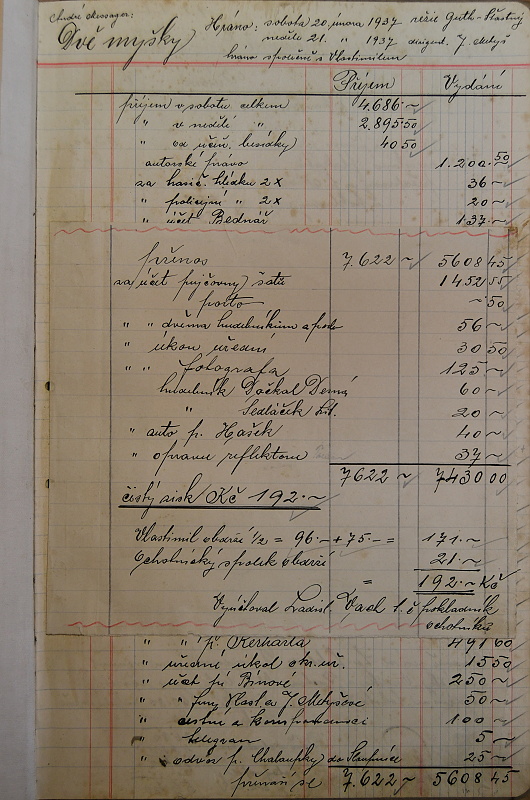 André Messager:
Dvě myšky
Hráno: sobota 20. února 1937 režie Guth-Šťastný
neděle 21. " 1937 dirigent J. Metyš
hráno společně s Vlastimilem
Příjem Vydání
příjem v sobotu celkem 4.686·~
" v neděli " 2.895·50
" od besídky) 40 50
autorské právo 1.200·50
za hasič. hlídku 2x 36~
" policejní " 2x 20~
" účet Bednář 137·~
přenos 7.622~ 5608 45
za účet půjčovny šatů 1452 55
porto ~50
" " dvěma hudebníkům 56~
" úkon úřední 30 50
" " fotografa 125~
hudebník Dočkal 60~
" Sedláček 20~
" auto p. Hašek 40~
" opravu reflektorů 37~
7622 ~ 7430 00
čistý zisk Kč 192·~
Vlastimil obdrží ½ = 96·- + 75·- = 171·~
Ochotnický spolek obdrží 21·~
= 192·~ Kč
Vyúčtoval Ladisl. Vach t. č. pokladník
ochotníků
" " p. Kerharta 491 60
" úřední úkol okr. úř. 15 50
" účet 250~
" " J. Metyšové 50~
" 100~
" telegram 5~
" odvoz p. Chaloupky do 25~
přináší se 7.622~ 5608 45